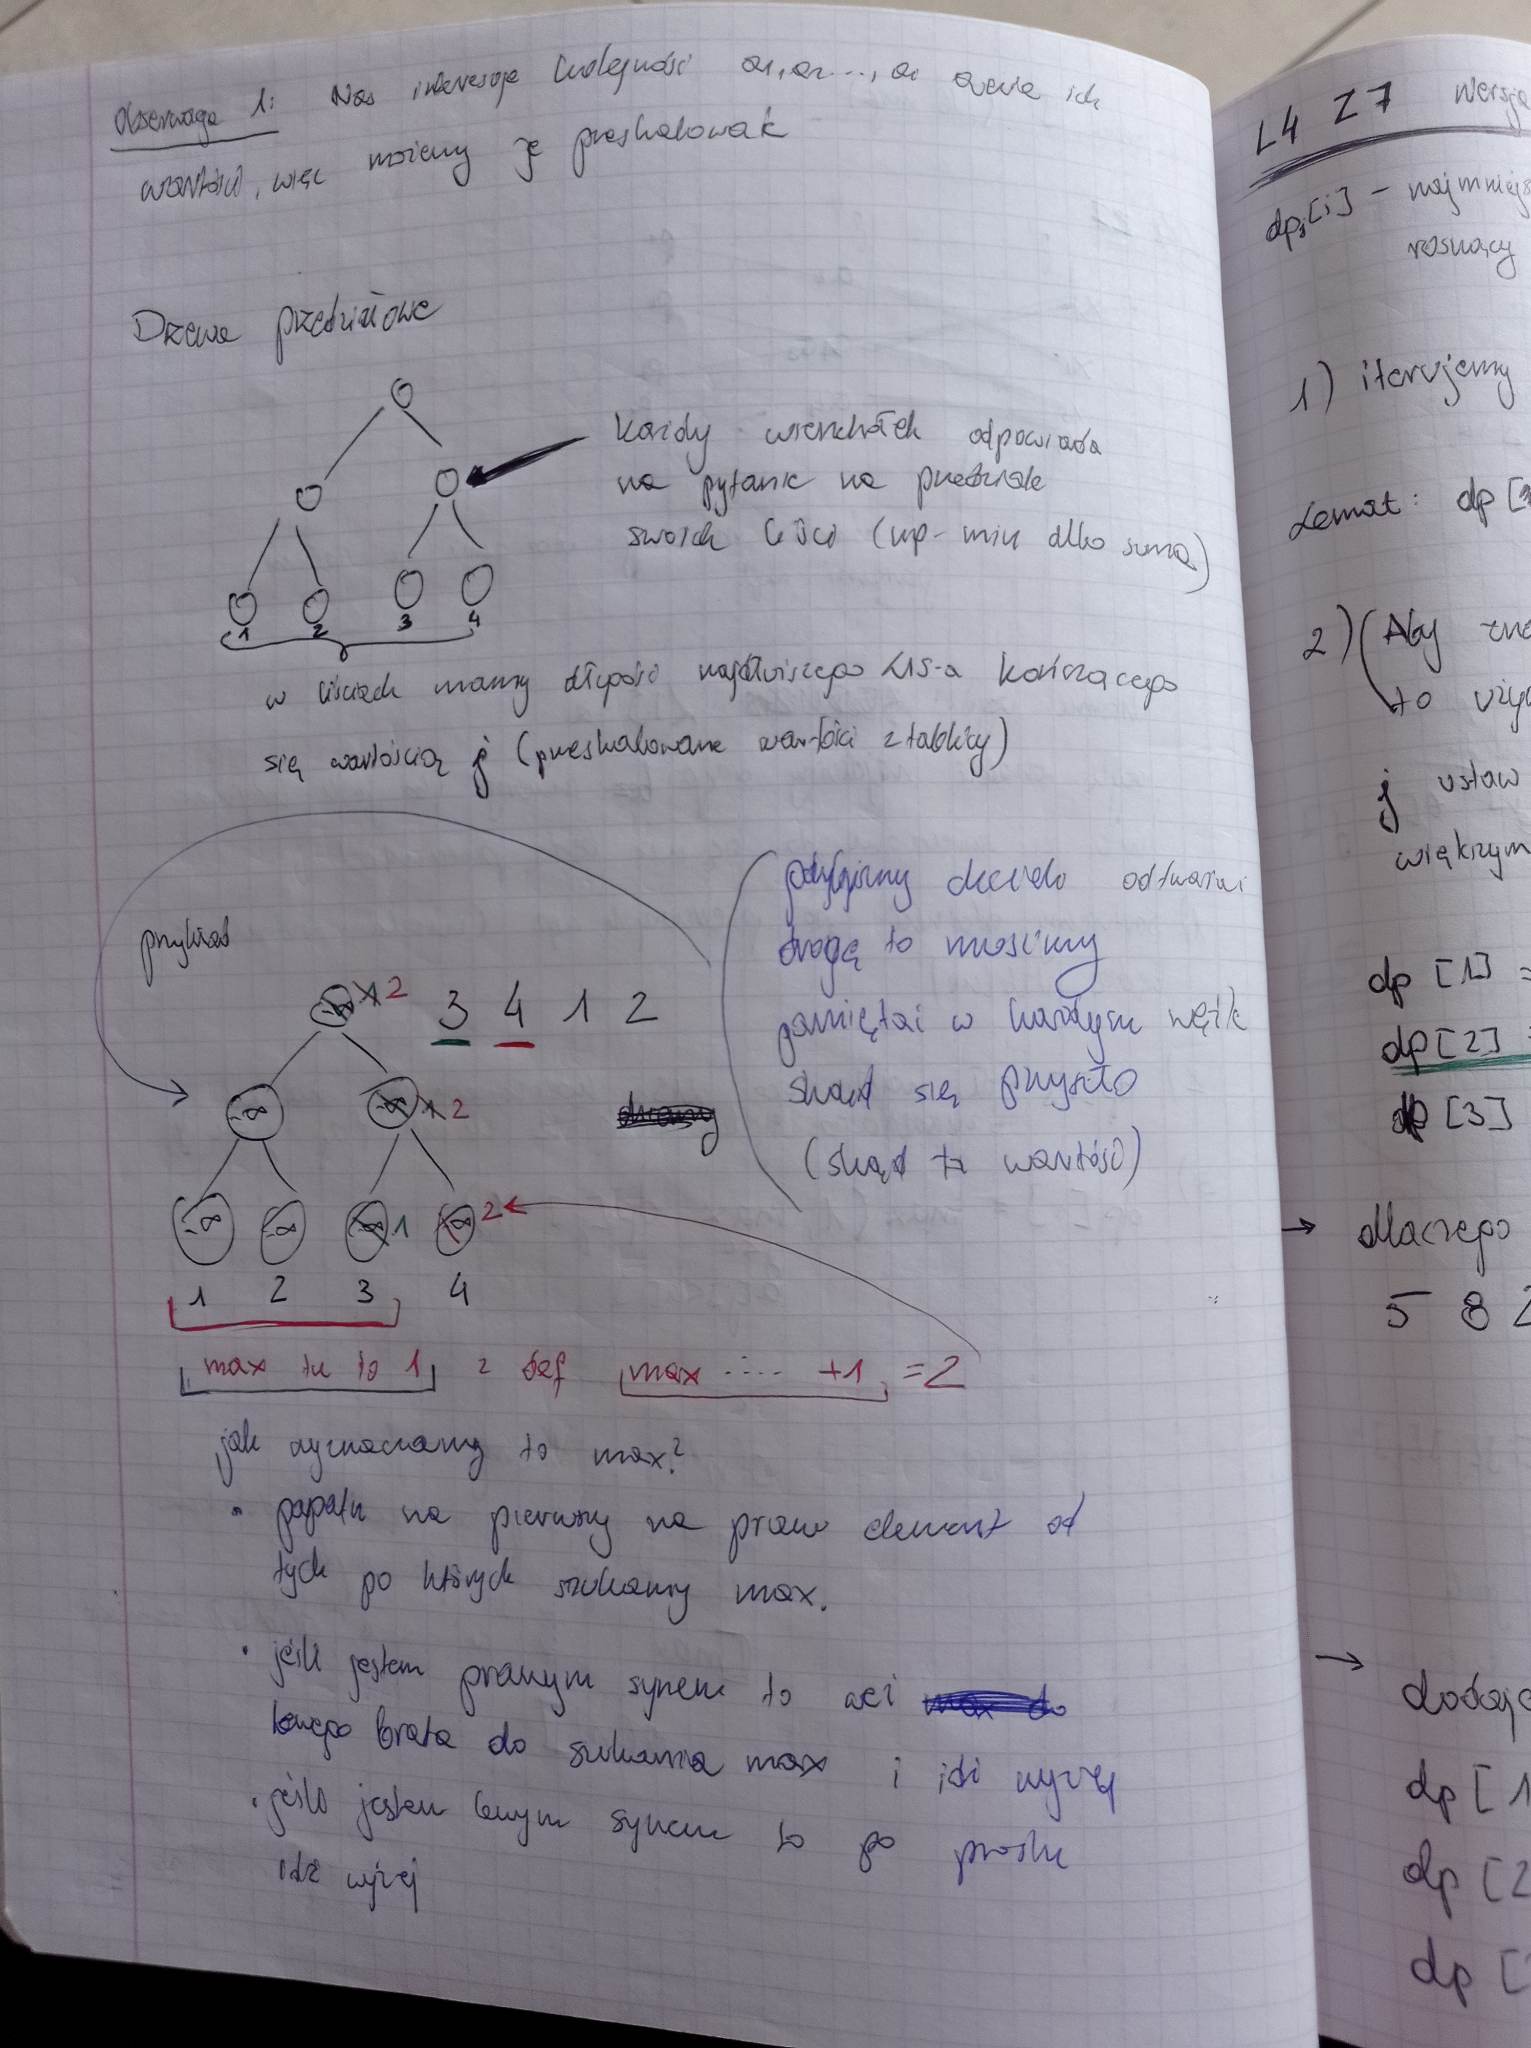 Obserwacja 1: Nas interesuje kolejność a1, a2 ..., a ich
wartości, więc możemy je przeskalować
Drzewa przedziałowe
każdy wierzchołek odpowiada
na pytanie na przedziale
swoich liści (np. min albo suma)
1 2 3 4
w liściach mamy długość najdłuższego LIS-a kończącego
się wartością j (przeskalowane wartości z tablicy)
gdybyśmy chcieli odtwarzać
drogę to musimy
pamiętać w każdym węźle
skąd się przyszło
(skąd ta wartość)
przykład
1 2 3 4 1 2
-∞ -∞ 1 2
-∞ -∞ -∞ 1 -∞ 2
1 2 3 4
max tu to 1 z def max ..... +1 = 2
jak wyznaczamy to max?
• popatrz na pierwszy na prawo element od
tych po których szukamy max.
• jeśli jestem prawym synem to weź max do
lewego brata do szukania max i idź wyżej
• jeśli jestem lewym synem to po prostu
idź wyżej
L4 Z7 wersja
dpj[i] - najmniejs
rosnący
1) iterujemy
Lemat: dp [
2) (Aby zna
to uży
j ustaw
większym
dp [1] =
dp [2] =
dp [3]
→ dlaczego
5 8 2
→ dodaje
dp [1
dp [2
dp [